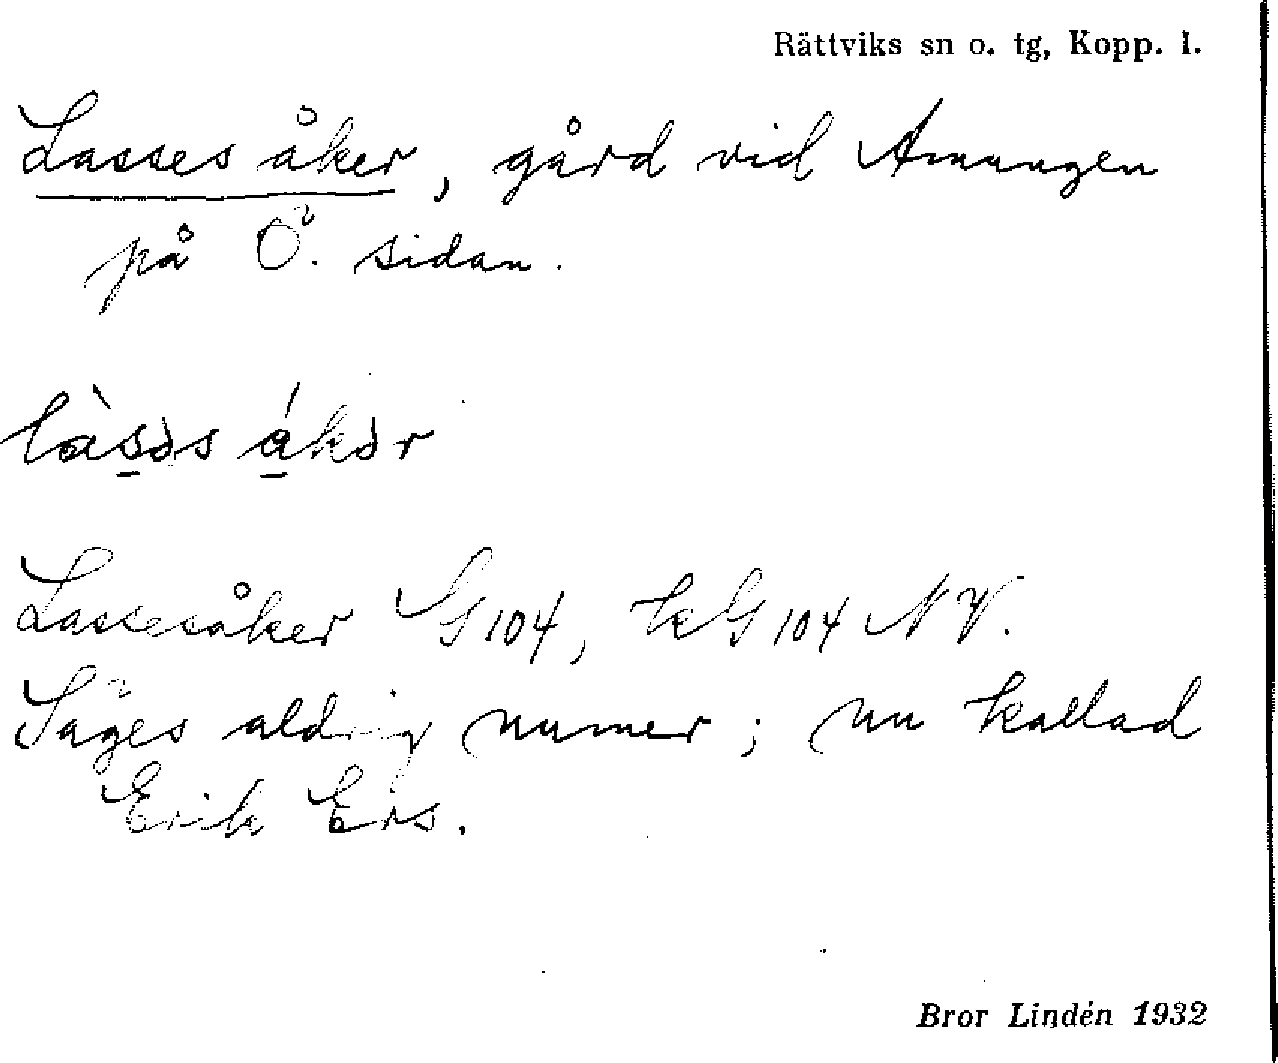 Rättviks sn o. tg, Kopp. l.
Lasses åker, gård vid Amungen
på Ö. sidan.
làsəs ákər
Lassesåker G 104, kG 104 NV.
Säges aldrig numer; nu kallad
Erik Ers.
Bror Lindén 1932